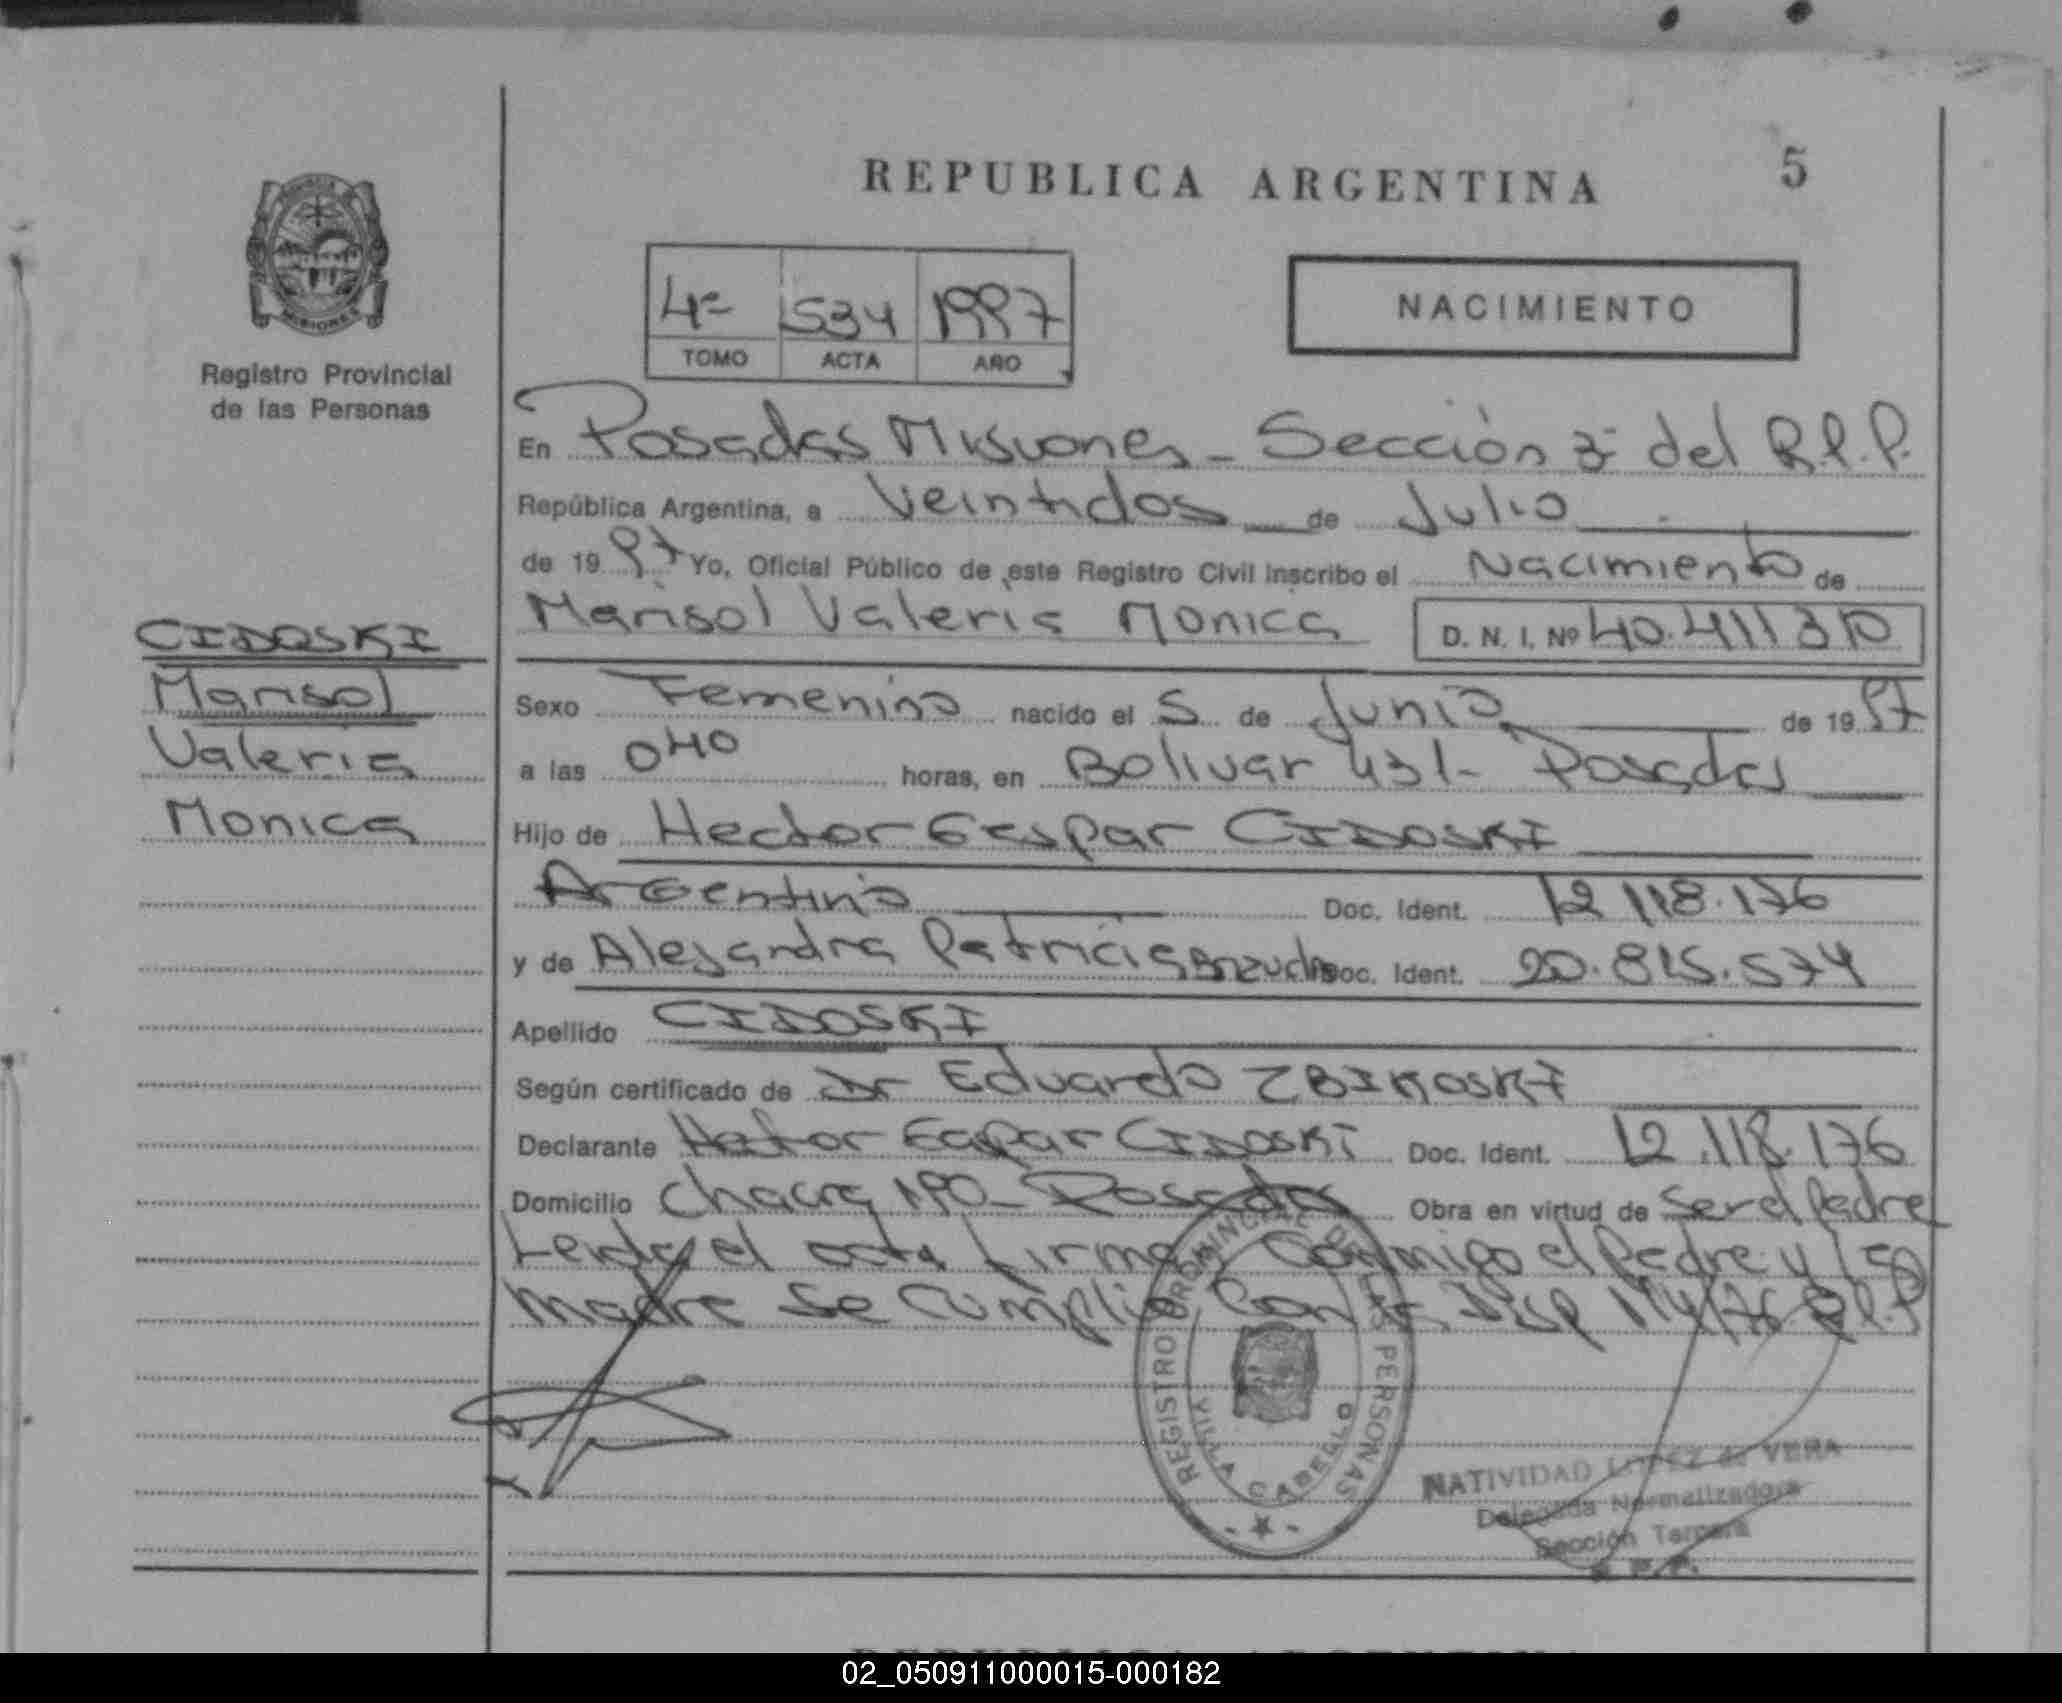 REPUBLICA ARGENTINA
5
MISIONES
Registro Provincial
de las Personas
4º 534 1997
TOMO ACTA AÑO
NACIMIENTO
En Posadas Misiones - Sección 3ª del R.P.P.
República Argentina, a Veintidos de Julio
de 19 97 Yo, Oficial Público de este Registro Civil inscribo el Nacimiento de
Marisol Valeria Monica D. N. I. Nº 40.411310
CIDOSKI
Marisol
Valeria
Monica
Sexo Femenino nacido el 5 de Junio de 19 97
a las 040 horas, en Bolivar 431- Posadas
Hijo de Hector Gaspar CIDOSKI
Argentino Doc. Ident. 12 118.176
y de Alejandra Patricia Doc. Ident. 20.815.574
Apellido CIDOSKI
Según certificado de Dr Eduardo ZBIKOSKI
Declarante Hector Gaspar CIDOSKI Doc. Ident. 12.118.176
Domicilio Chacra 190- Posadas Obra en virtud de Ser el Padre
Leida el acta firma Conmigo el Padre y la
madre Se Cumplio Con la Disp R.P.P
REGISTRO PROVINCIAL DE LAS PERSONAS
VILLA CABELLO
NATIVIDAD LOPEZ de VERA
Delegada Normalizadora
Sección Tercera
R. P. P.
02_050911000015-000182